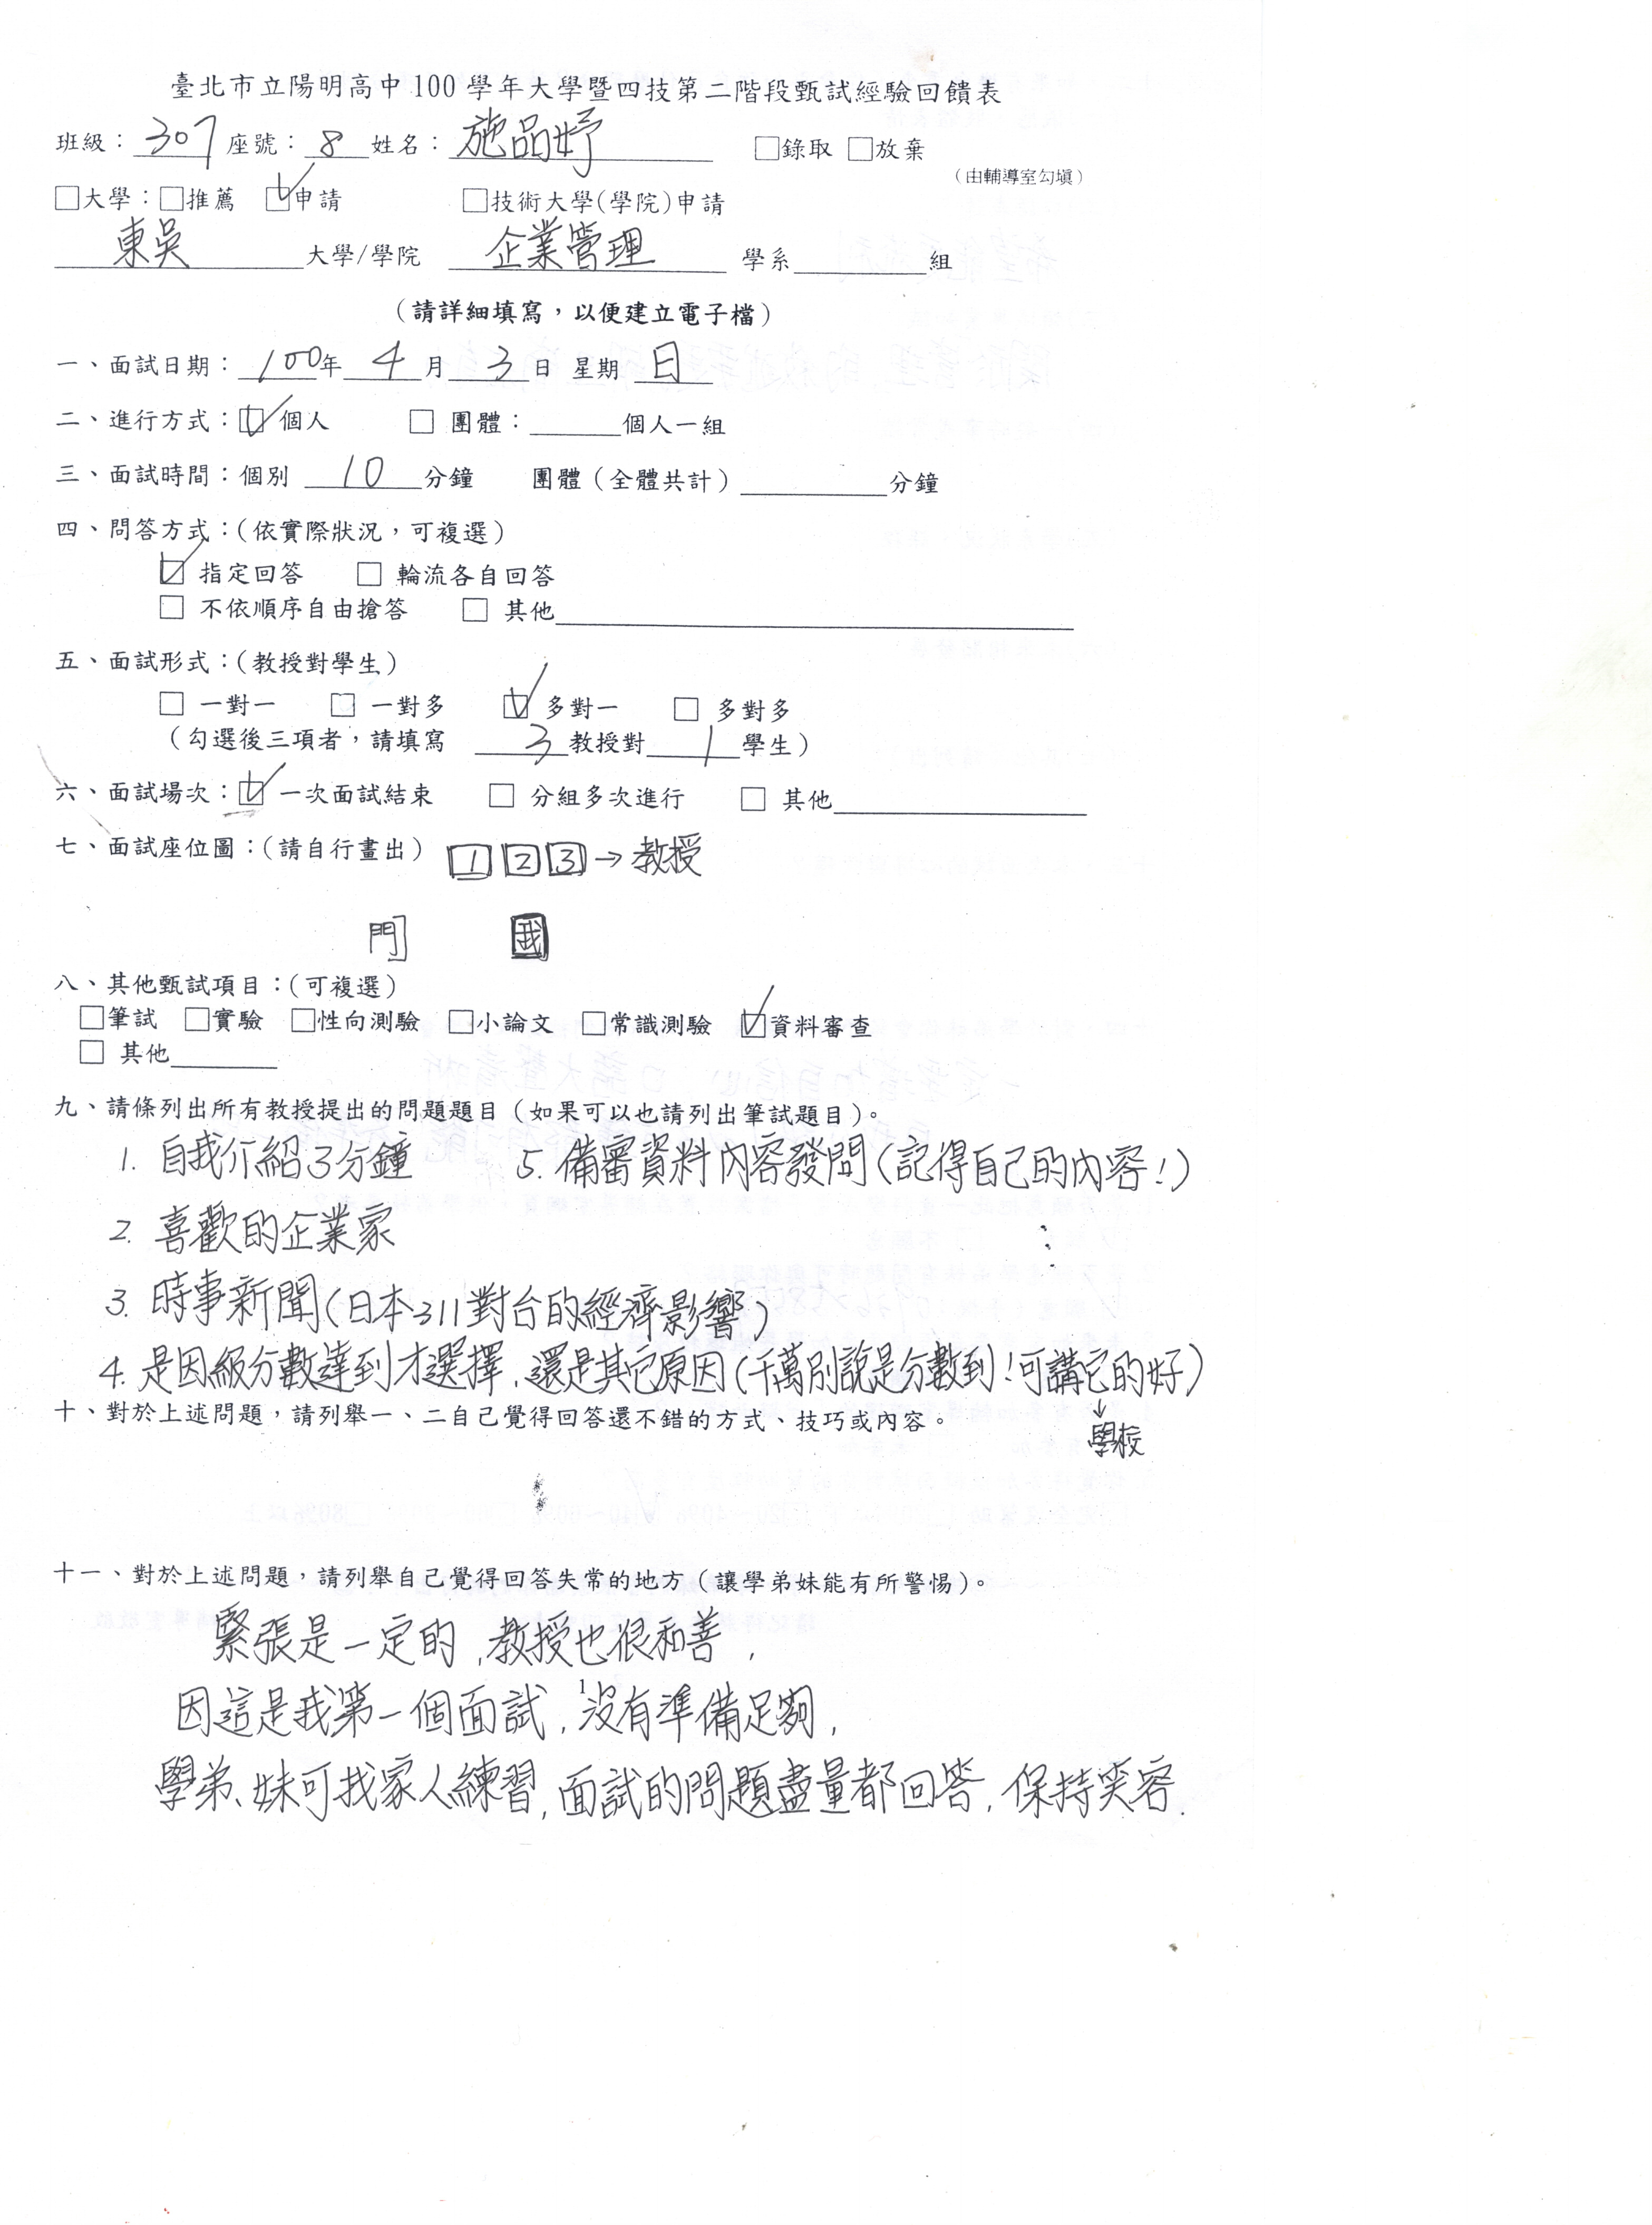 臺北市立陽明高中100學年大學暨四技第二階段甄試經驗回饋表
班級：307座號：8姓名：施品妤 □錄取 □放棄
（由輔導室勾填）
□大學：□推薦 ☑申請 □技術大學(學院)申請
東吳大學/學院 企業管理 學系______組
（請詳細填寫，以便建立電子檔）
一、面試日期：100年4月3日 星期 日
二、進行方式：☑個人 □ 團體：______個人一組
三、面試時間：個別 10 分鐘 團體（全體共計）______分鐘
四、問答方式：(依實際狀況，可複選)
☑ 指定回答 □ 輪流各自回答
□ 不依順序自由搶答 □ 其他______
五、面試形式：(教授對學生)
□ 一對一 □ 一對多 ☑ 多對一 □ 多對多
（勾選後三項者，請填寫 3教授對1學生）
六、面試場次：☑ 一次面試結束 □ 分組多次進行 □ 其他______
七、面試座位圖：(請自行畫出) 1 2 3→教授
門 我
八、其他甄試項目：(可複選)
□筆試 □實驗 □性向測驗 □小論文 □常識測驗 ☑資料審查
□ 其他______
九、請條列出所有教授提出的問題題目（如果可以也請列出筆試題目）。
1. 自我介紹3分鐘 5. 備審資料內容發問(記得自己的內容！)
2. 喜歡的企業家
3. 時事新聞(日本311對台的經濟影響)
4. 是因級分數達到才選擇，還是其它原因(千萬別說是分數到！可講它的好)
↓
學校
十、對於上述問題，請列舉一、二自己覺得回答還不錯的方式、技巧或內容。
十一、對於上述問題，請列舉自己覺得回答失常的地方（讓學弟妹能有所警惕）。
緊張是一定的，教授也很和善，
因這是我第一個面試，沒有準備足夠，
學弟、妹可找家人練習，面試的問題盡量都回答，保持笑容.
1